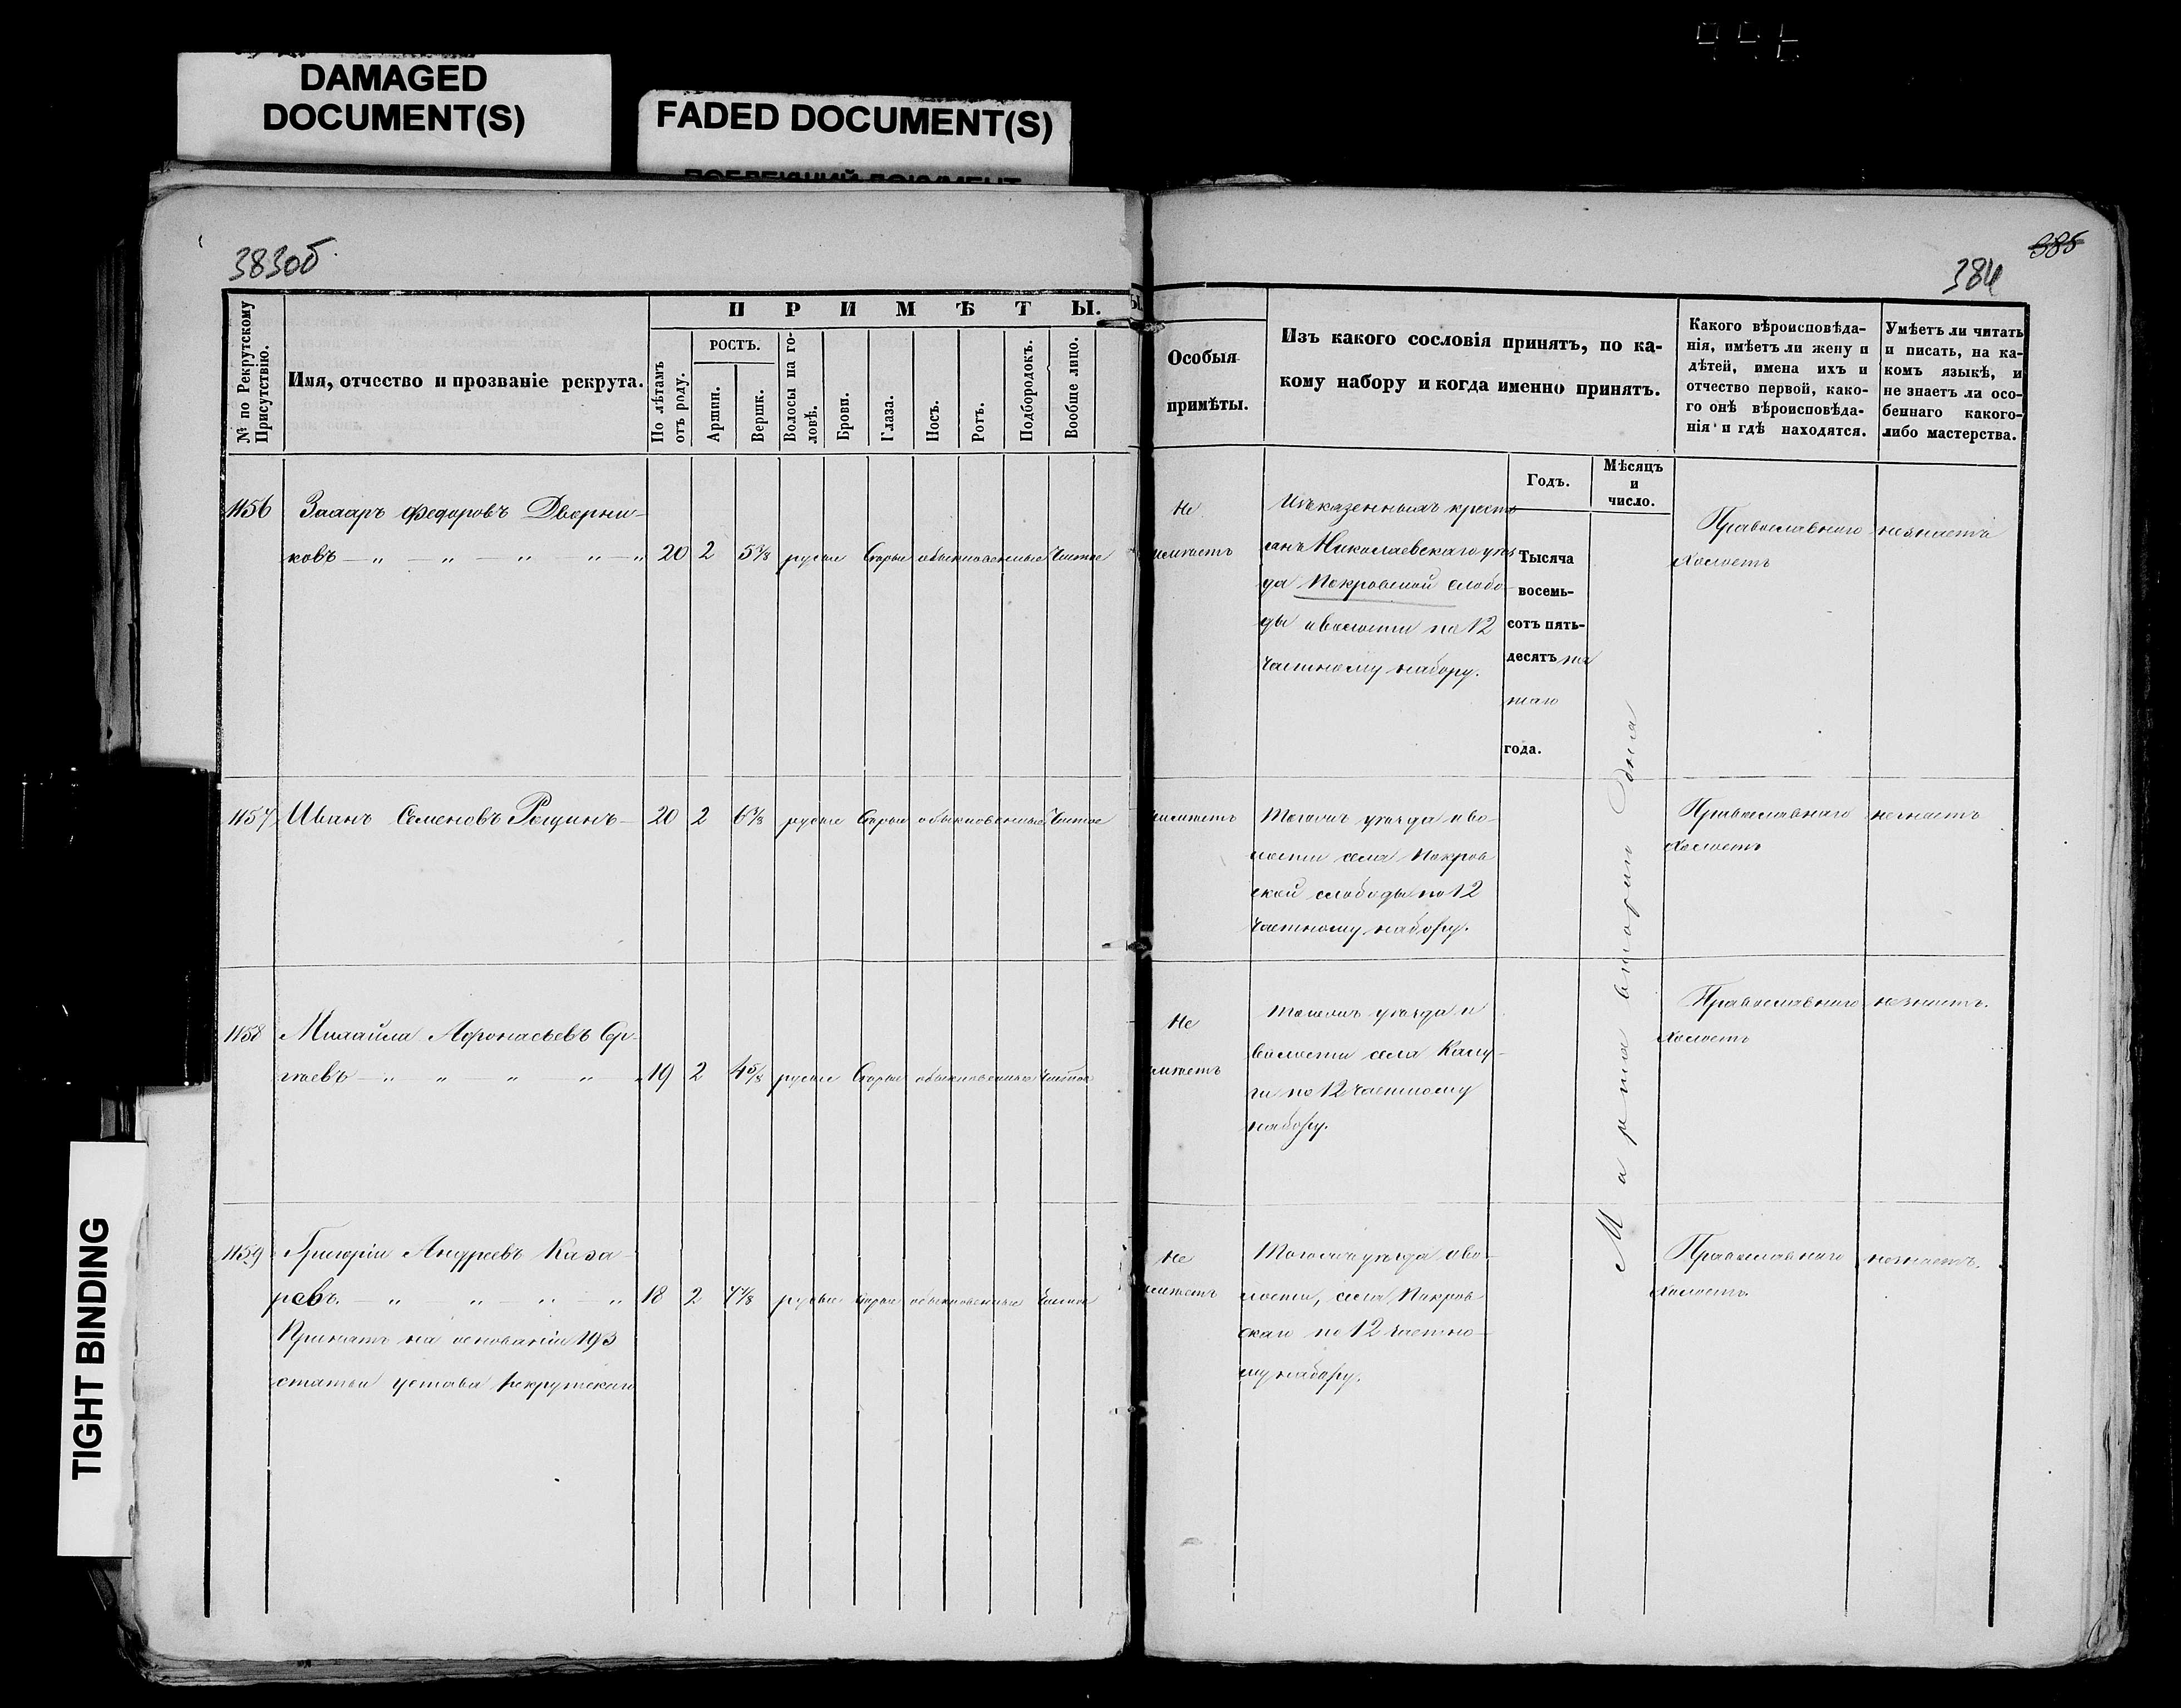 DAMAGED
DOCUMENT(S)
FADED DOCUMENT(S)
TIGHT BINDING
383об
385
384
№ по Рекрутскому Присутствію.
Имя, отчество и прозваніе рекрута.
ПРИМѢТЫ.
По лѣтамъ отъ роду.
РОСТЪ.
Аршин.
Вершк.
Волосы на головѣ.
Брови.
Глаза.
Носъ.
Ротъ.
Подбородокъ.
Вообще лицо.
Особыя
примѣты.
Изъ какого сословія принятъ, по ка-
кому набору и когда именно принятъ.
Годъ.
Мѣсяцъ
и
число.
Какого вѣроисповѣда-
нія, имѣетъ ли жену и
дѣтей, имена ихъ и
отчество первой, како-
го онѣ вѣроисповѣда-
нія и гдѣ находятся.
Умѣетъ ли читать
и писать, на ка-
комъ языкѣ, и
не знаетъ ли осо-
беннаго какого-
либо мастерства.
1156 Захаръ Федоровъ Дворни-
ковъ — „ — „ — „ „ — „ 20 2 5 3/8 русые Серые обыкновенные Чистое
Не
имѣетъ
Изъ казенныхъ кресть
янъ Николаевскаго уѣз
да Покровской слобо-
ды и волости по 12
частному набору.
Тысяча
восемь-
сотъ пять-
десятъ пя
таго
года.
Марта втораго дня
Православнаго
Холостъ
незнаетъ
1157 Иванъ Семеновъ Рощинъ — 20 2 6 4/8 русые Серые обыкновенные Чистое
неимѣетъ
Тогоже уѣзда и во-
лости села Покров
ской слободы по 12
частному набору.
Православнаго
Холостъ
незнаетъ
1158 Михайла Афонасьевъ Сер-
гѣевъ — „ „ „ „ „ 19 2 4 5/8 русые Серые обыкновенные Чистое
Не
имѣетъ
Тогоже уѣзда и
волости села
по 12 частному
набору.
Православнаго
Холостъ
незнаетъ.
1159 Григорій Андреевъ Каза-
ревъ. — „ „ „ „ 18 2 4 4/8 русые Серые обыкновенные Чистое
Принятъ на основаніи 193
статьи устава рекрутскаго
Не
имѣетъ
Тогоже уѣзда и во-
лости, села Покров
скаго по 12 частно-
му набору.
Православнаго
Холостъ.
незнаетъ.